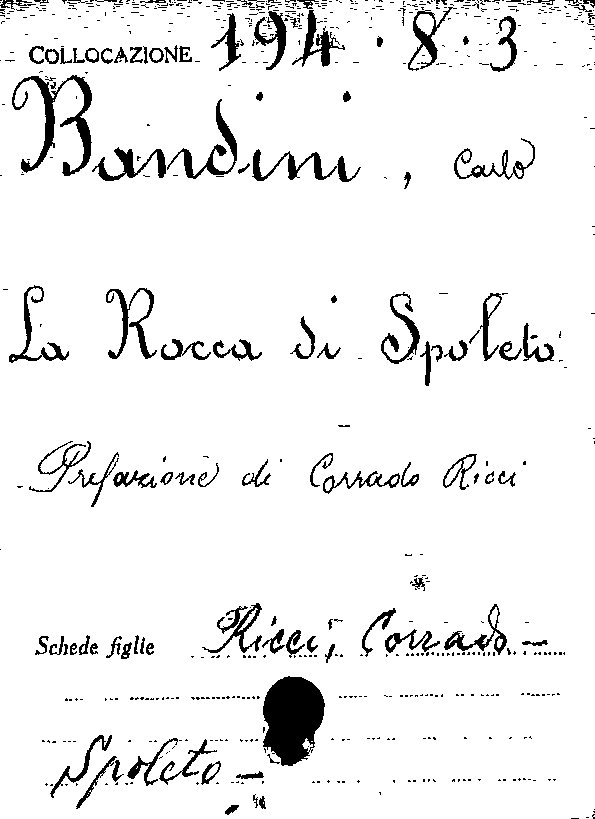 COLLOCAZIONE 194.8.3
Bandini, Carlo
La Rocca di Spoleto
Prefazione di Corrado Ricci
Schede figlie Ricci, Corrado -
Spoleto -